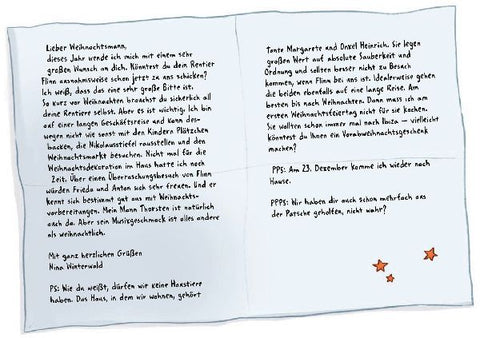 Lieber Weihnachtsmann,
dieses Jahr wende ich mich mit einem sehr
großen Wunsch an dich. Könntest du dein Rentier
Flinn ausnahmsweise schon jetzt zu uns schicken?
Ich weiß, dass das eine sehr große Bitte ist.
So kurz vor Weihnachten brauchst du sicherlich all
deine Rentiere selbst. Aber es ist wichtig. Ich bin
auf einer langen Geschäftsreise und kann des-
wegen nicht wie sonst mit den Kindern Plätzchen
backen, die Nikolausstiefel rausstellen und den
Weihnachtsmarkt besuchen. Nicht mal für die
Weihnachtsdekoration im Haus hatte ich noch
Zeit. Über einen Überraschungsbesuch von Flinn
würden Frieda und Anton sich sehr freuen. Und er
kennt sich bestimmt gut aus mit Weihnachts-
vorbereitungen. Mein Mann Thorsten ist natürlich
auch da. Aber sein Musikgeschmack ist alles andere
als weihnachtlich.
Mit ganz herzlichen Grüßen
Nina Winterwald
PS: Wie du weißt, dürfen wir keine Haustiere
haben. Das Haus, in dem wir wohnen, gehört
Tante Margarete und Onkel Heinrich. Sie legen
großen Wert auf absolute Sauberkeit und
Ordnung und sollten besser nicht zu Besuch
kommen, wenn Flinn bei uns ist. Idealerweise gehen
die beiden ebenfalls auf eine lange Reise. Am
besten bis nach Weihnachten. Dann muss ich am
ersten Weihnachtsfeiertag nicht für sie kochen.
Sie wollten schon immer mal nach Ibiza – vielleicht
könntest du Ihnen ein Vorabweihnachtsgeschenk
machen?
PPS: Am 23. Dezember komme ich wieder nach
Hause.
PPPS: Wir haben dir auch schon mehrfach aus
der Patsche geholfen, nicht wahr?